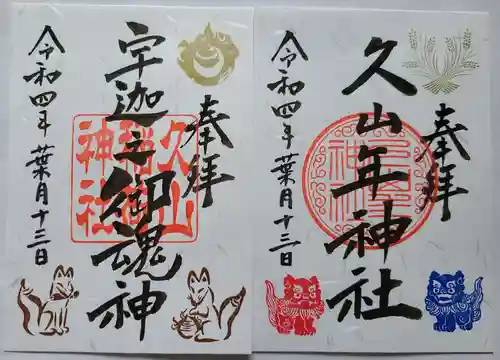 奉拝
宇迦之御魂神
久山
稲荷
神社
令和四年 葉月十三日
奉拝
久山年神社
令和四年 葉月十三日